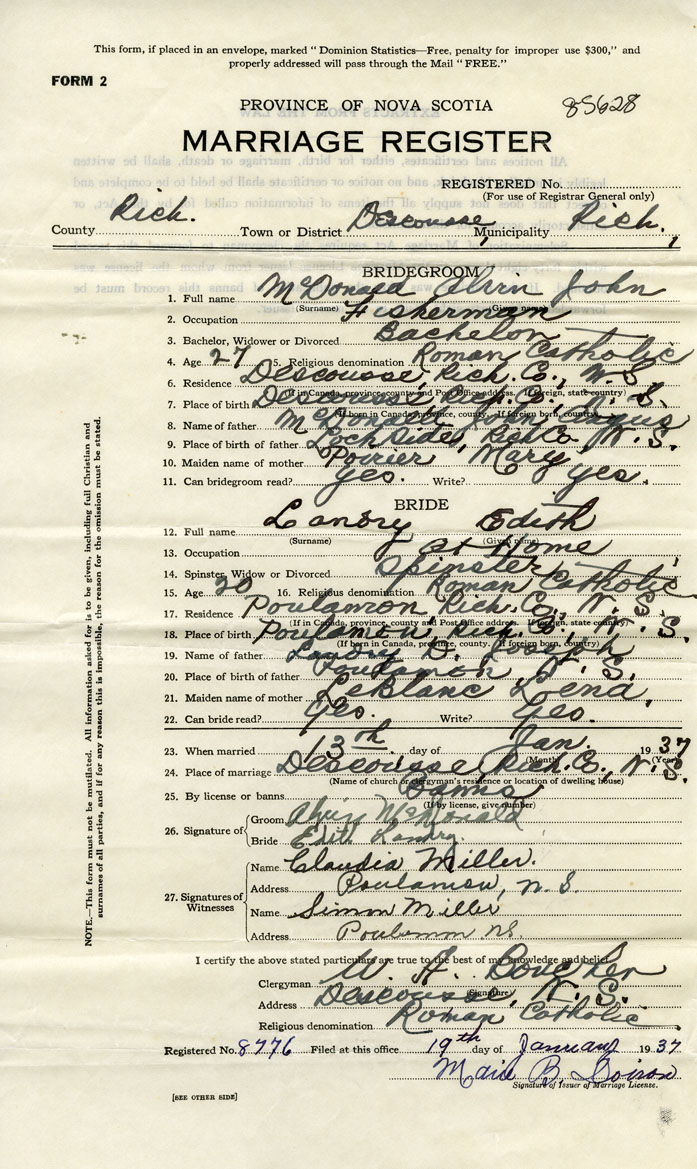 This form, if placed in an envelope, marked "Dominion Statistics—Free, penalty for improper use $300," and
properly addressed will pass through the Mail "FREE."
FORM 2
PROVINCE OF NOVA SCOTIA 85628
MARRIAGE REGISTER
REGISTERED No.
(For use of Registrar General only)
County Rich. Town or District Descousse, Municipality Rich.
BRIDEGROOM
1. Full name McDonald Alvin John
(Surname) (Given name)
2. Occupation Fisherman
3. Bachelor, Widower or Divorced Bachelor
4. Age 27 5. Religious denomination Roman Catholic
6. Residence Descousse, Rich. Co., N. S.
(If in Canada, province, county and Post Office address. If foreign, state country)
7. Place of birth Descousse, Rich. Co., N. S.
(If born in Canada, province, county. If foreign born, country)
8. Name of father McDonald John Angus
9. Place of birth of father Loch Side, Rich. Co., N. S.
10. Maiden name of mother Poirier, Mary
11. Can bridegroom read? yes. Write? yes.
BRIDE
12. Full name Landry Edith
(Surname) (Given name)
13. Occupation at Home
14. Spinster, Widow or Divorced Spinster
15. Age 20 16. Religious denomination Roman Catholic
17. Residence Poulamon, Rich. Co., N. S.
(If in Canada, province, county and Post Office address. If foreign, state country)
18. Place of birth Poulamon, Rich. Co., N. S.
(If born in Canada, province, county. If foreign born, country)
19. Name of father Landry D. Joseph
20. Place of birth of father Poulamon, N. S.
21. Maiden name of mother LeBlanc Lena,
22. Can bride read? Yes. Write? Yes.
23. When married 13th day of Jan 1937
(Month) (Year)
24. Place of marriage Descousse Rich. Co., N. S.
(Name of church or clergyman's residence or location of dwelling house)
25. By license or banns Banns
(If by license, give number)
26. Signature of Groom Alvin McDonald
Bride Edith Landry.
27. Signatures of Witnesses Name Claudia Miller.
Address Poulamon, N. S.
Name Simon Miller
Address Poulamon NS.
I certify the above stated particulars are true to the best of my knowledge and belief.
Clergyman W. A. Boucher
(Signature)
Address Descousse, N. S.
Religious denomination Roman Catholic
Registered No. 8776 Filed at this office 19th day of January 1937
B. Doiron
Signature of Issuer of Marriage License.
[SEE OTHER SIDE]
NOTE.—This form must not be mutilated. All information asked for is to be given, including full Christian and
surnames of all parties, and if for any reason this is impossible, the reason for the omission must be stated.